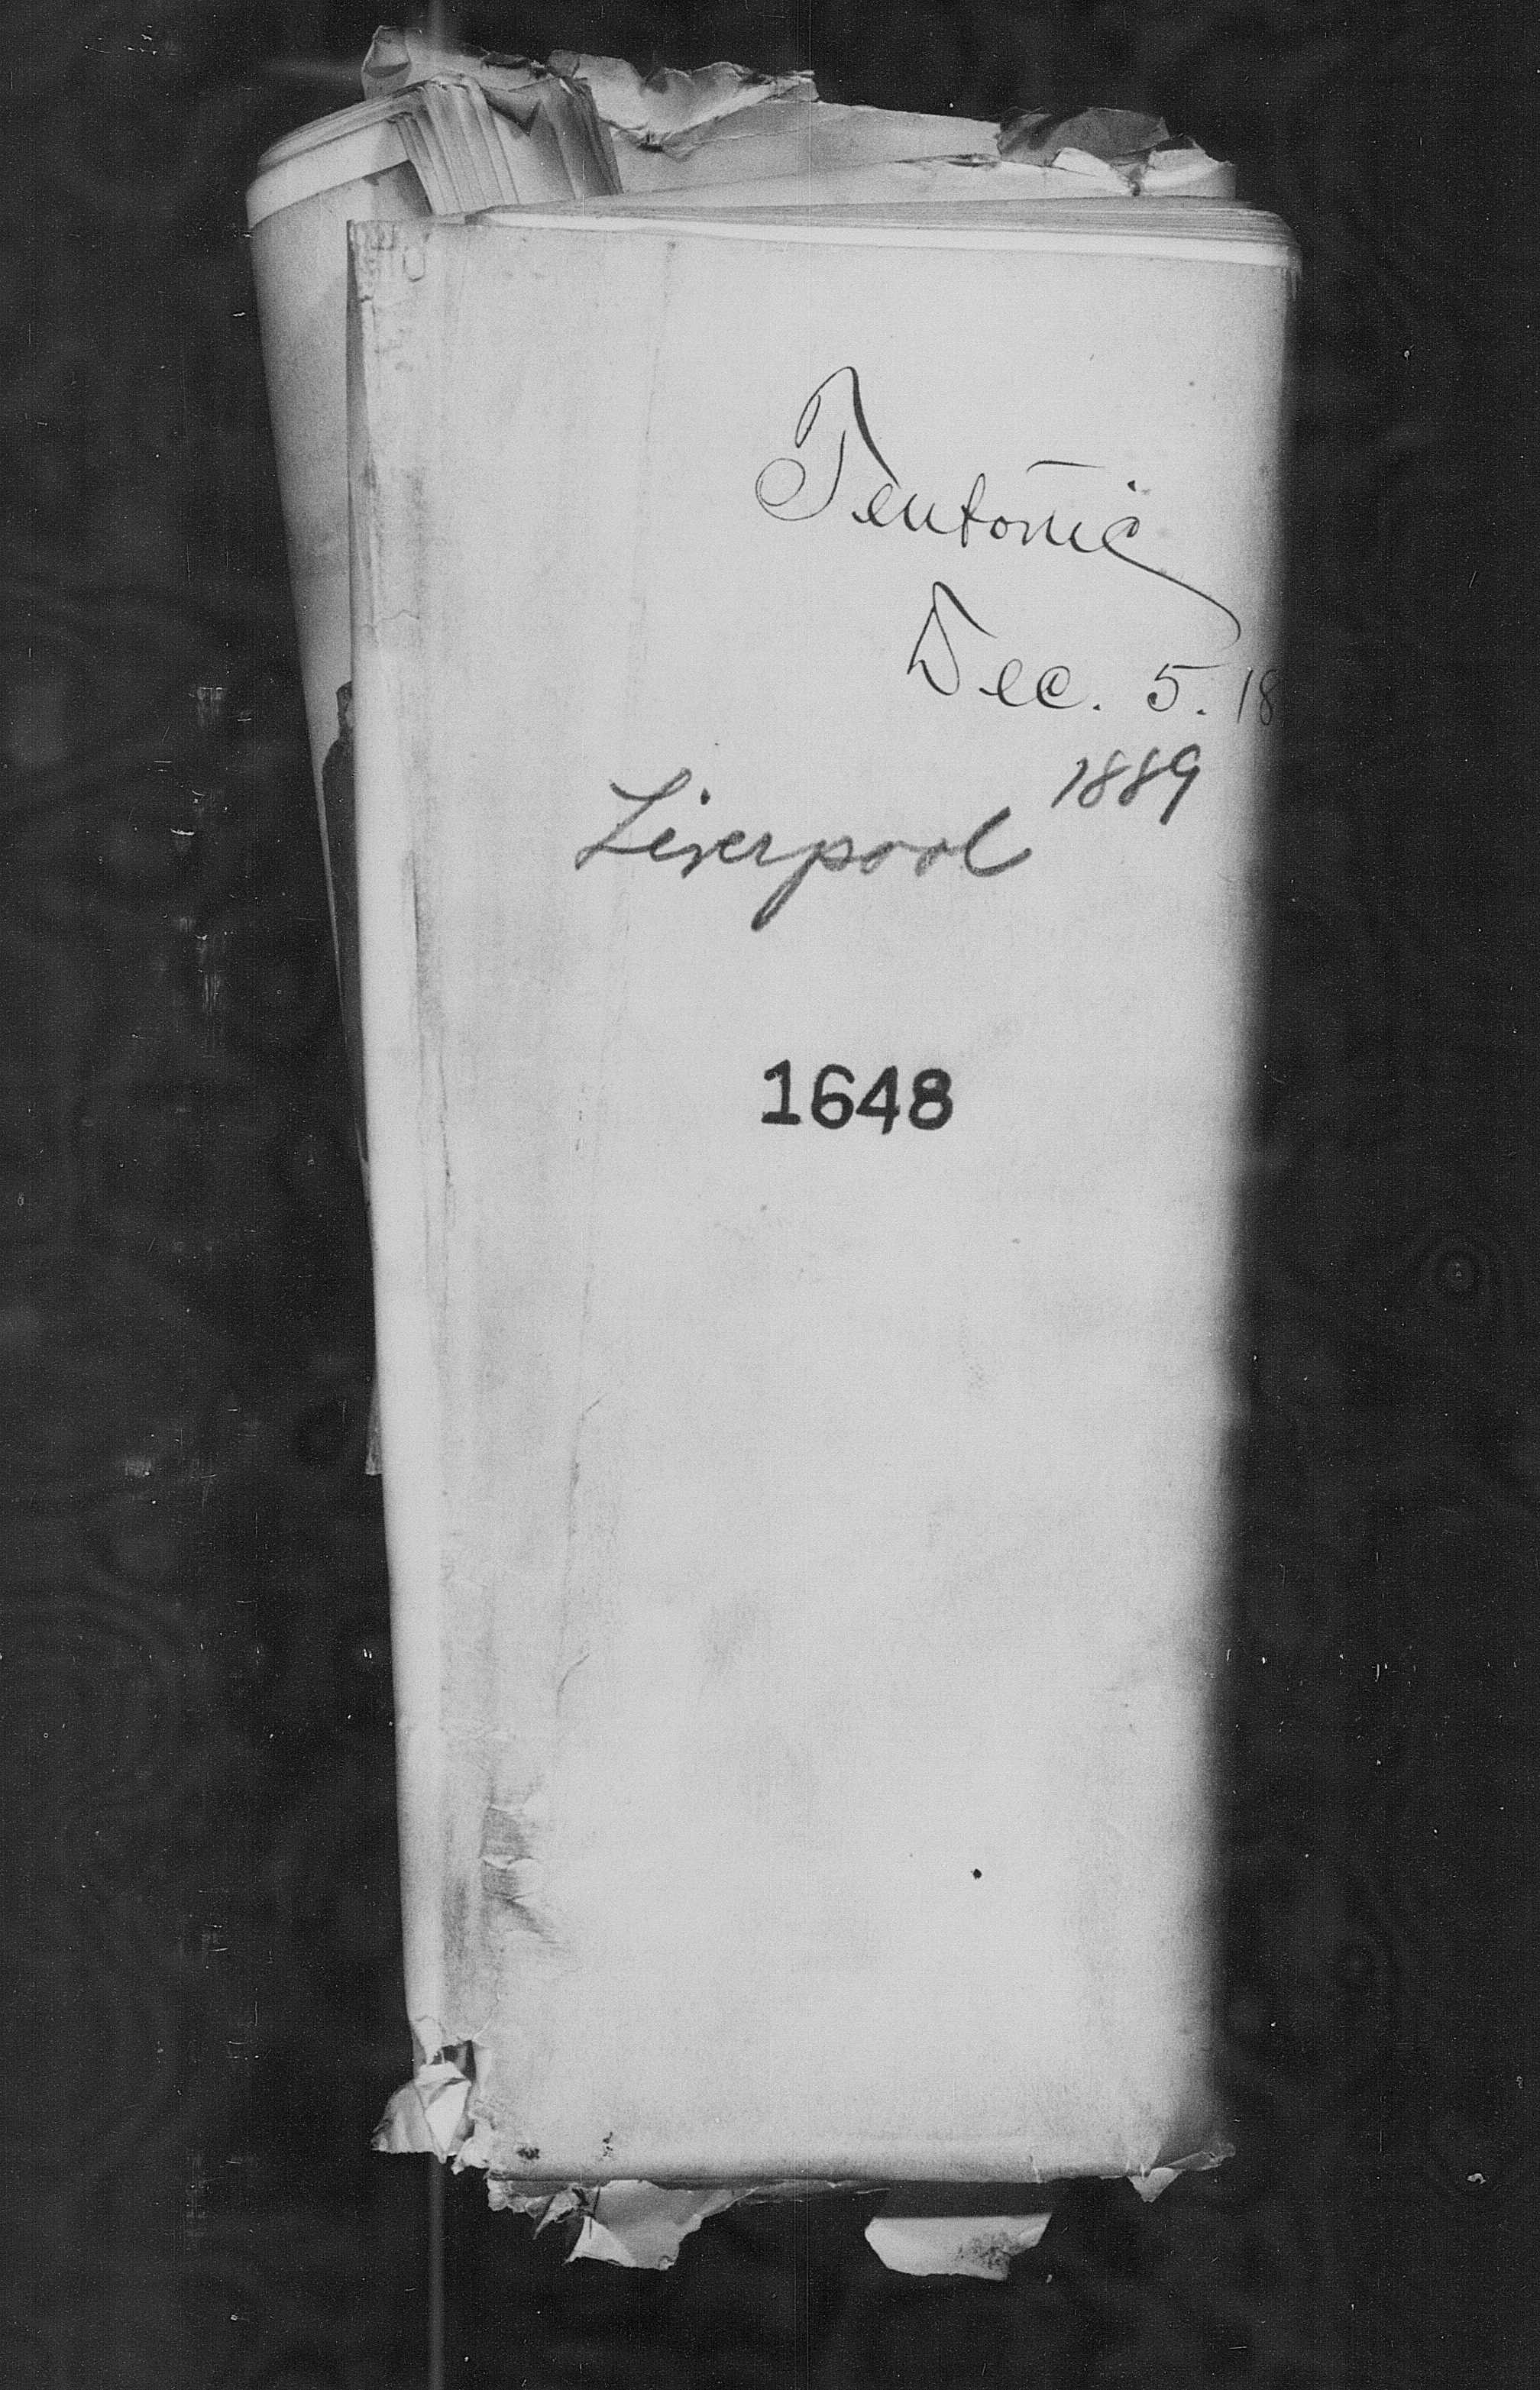 Teutonic
Dec. 5. 18
1889
Liverpool
1648